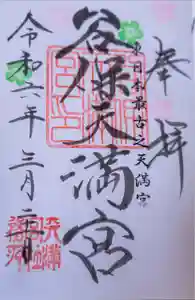 奉拝
東日本最古之天満宮
谷保天満宮
令和六年三月二十日